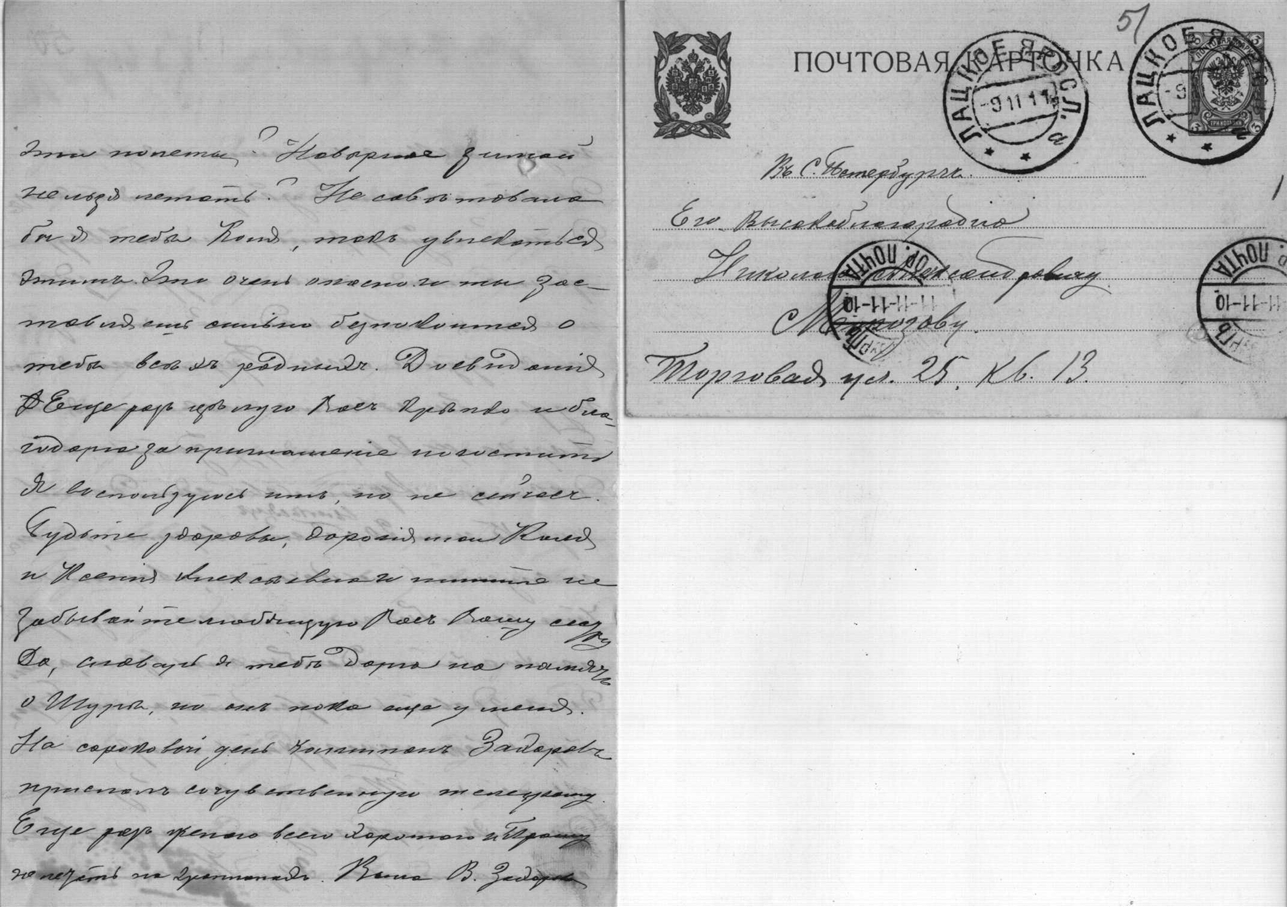 эти полеты? Наверное зимой
нельзя летать? Не совѣтовала
бы я тебѣ Коля, такъ увлекаться
этимъ. Это очень опасно и ты зас-
тавляешь сильно безпокоится о
тебѣ всѣхъ родныхъ. Досвиданія
Еще разъ цѣлую Васъ крѣпко и бла-
годарю за приглашеніе погостить
Я воспользуюсь имъ, но не сейчасъ.
Будьте здоровы, дорогія мои Коля
и Ксенія Алексѣевна и пишите не
забывайте любящую Васъ Вашу сестру
Да, словарь я тебѣ дарю на память
о Шурѣ, но онъ пока еще у меня.
На сороковой день капитанъ
прислалъ сочувственную телеграму.
Еще разъ желаю всего хорошаго и прошу
не летать на аэропланахъ. Ваша В.
51
ПОЧТОВАЯ КАРТОЧКА
ЛАЦКОЕ ЯРОСЛ. а
-9 11 11
ЛАЦКОЕ ЯРОСЛ. а
-9
Въ С. Петербургъ.
Его Высокоблагородію
Николаю Александровичу
Морозову.
Торговая ул. 25. Кв. 13.
ГОР. ПОЧТА
11-11-11-10
ПОЧТА
11-11-10